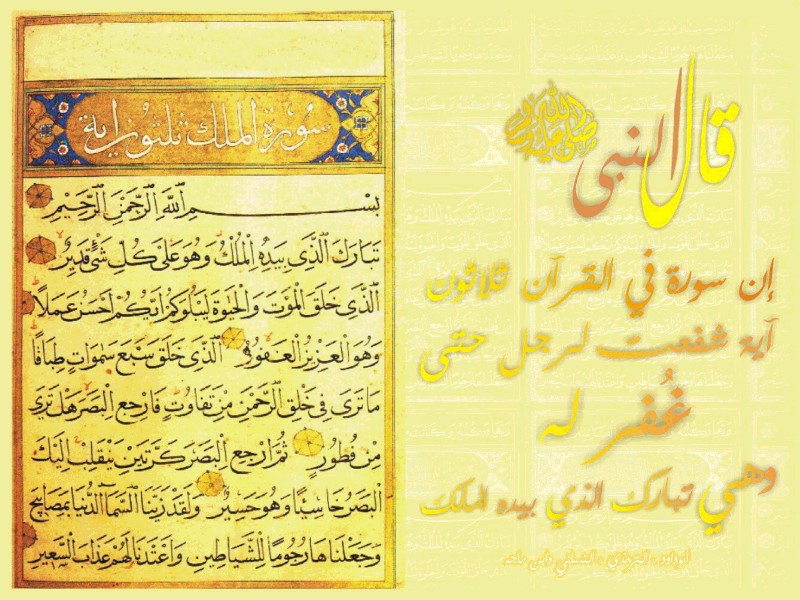 سورة الملك ثلثون اية
بسم الله الرحمن الرحيم
تبارك الذي بيده الملك وهو على كل شئ قدير
الذي خلق الموت والحيوة ليبلوكم ايكم احسن عملا
وهو العزيز الغفور الذي خلق سبع سموات طباقا
ما ترى في خلق الرحمن من تفاوت فارجع البصر هل ترى
من فطور ثم ارجع البصر كرتين ينقلب اليك
البصر خاسئا وهو حسير ولقد زينا السماء الدنيا بمصابيح
وجعلناها رجوما للشياطين واعتدنا لهم عذاب السعير
قال النبي صلى الله عليه وسلم
إن سورة في القرآن ثلاثون
آية شفعت لرجل حتى
غُفر له
وهي تبارك الذي بيده الملك
أبوداود - الترمذي - النسائي وابن ماجه